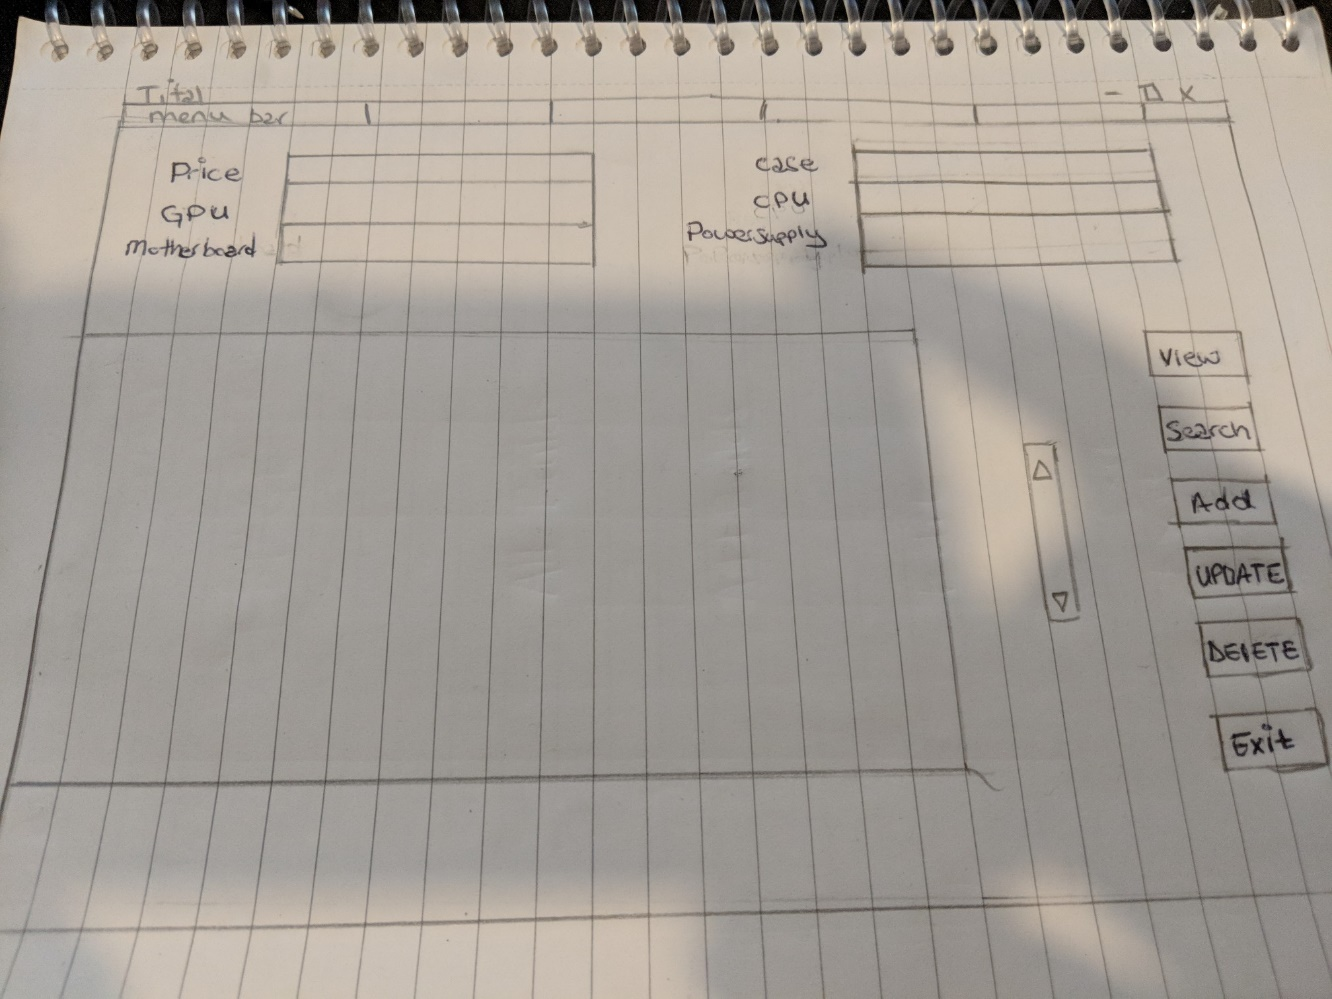 Tital
menu bar
- X
Price
GPU
Motherboard
case
CPU
Powersupply
View
Search
Add
UPDATE
DELETE
Exit